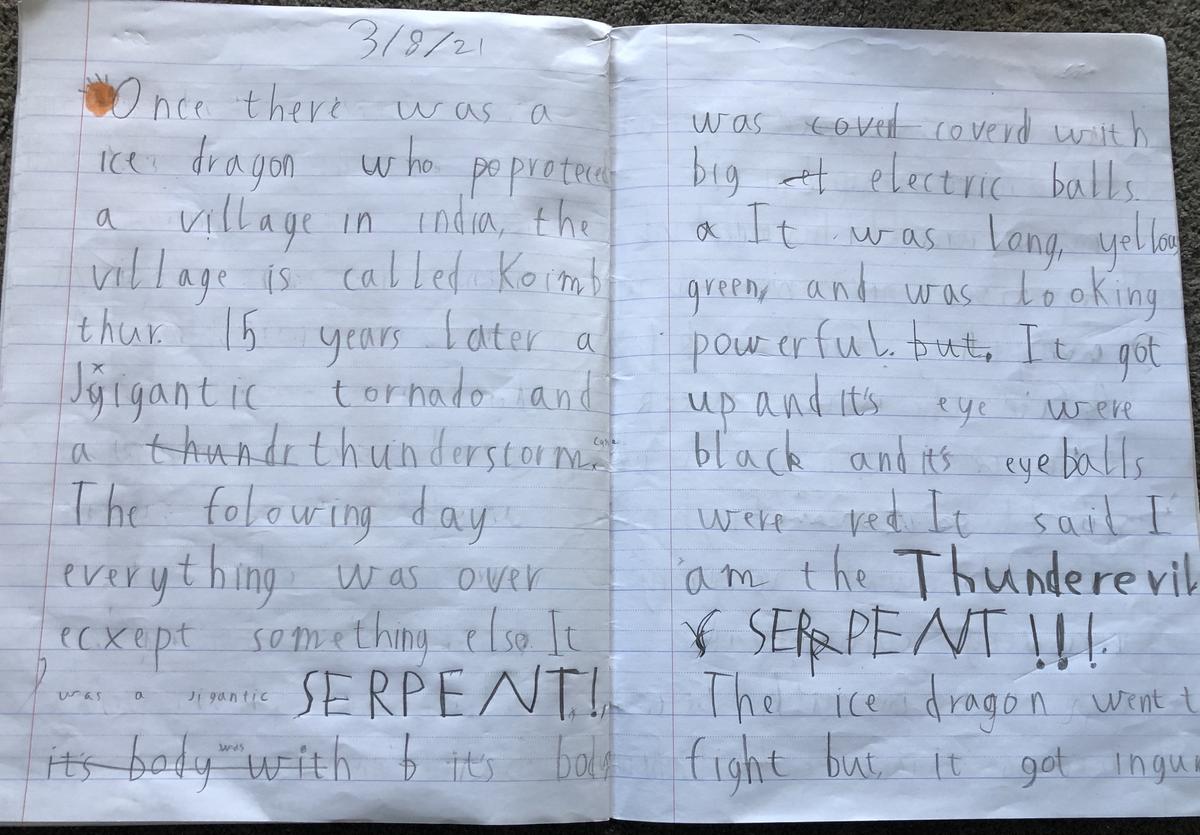 3/8/21
Once there was a
ice dragon who po protected
a village in india, the
village is called Koimb
thur. 15 years later a
Jgigantic tornado and
a thundr thunderstorm. came
The folowing day
everything was over
ecxept something else. It
was a jigantic SERPENT!!
it's body was with b it's body
was coverl coverd with
big et electric balls.
a It was long, yellow
green, and was looking
powerful. but. It got
up and it's eye were
black and it's eyeballs
were red. It said I
am the Thunderevil
SERPENT !!!
The ice dragon went t
fight but it got ingur